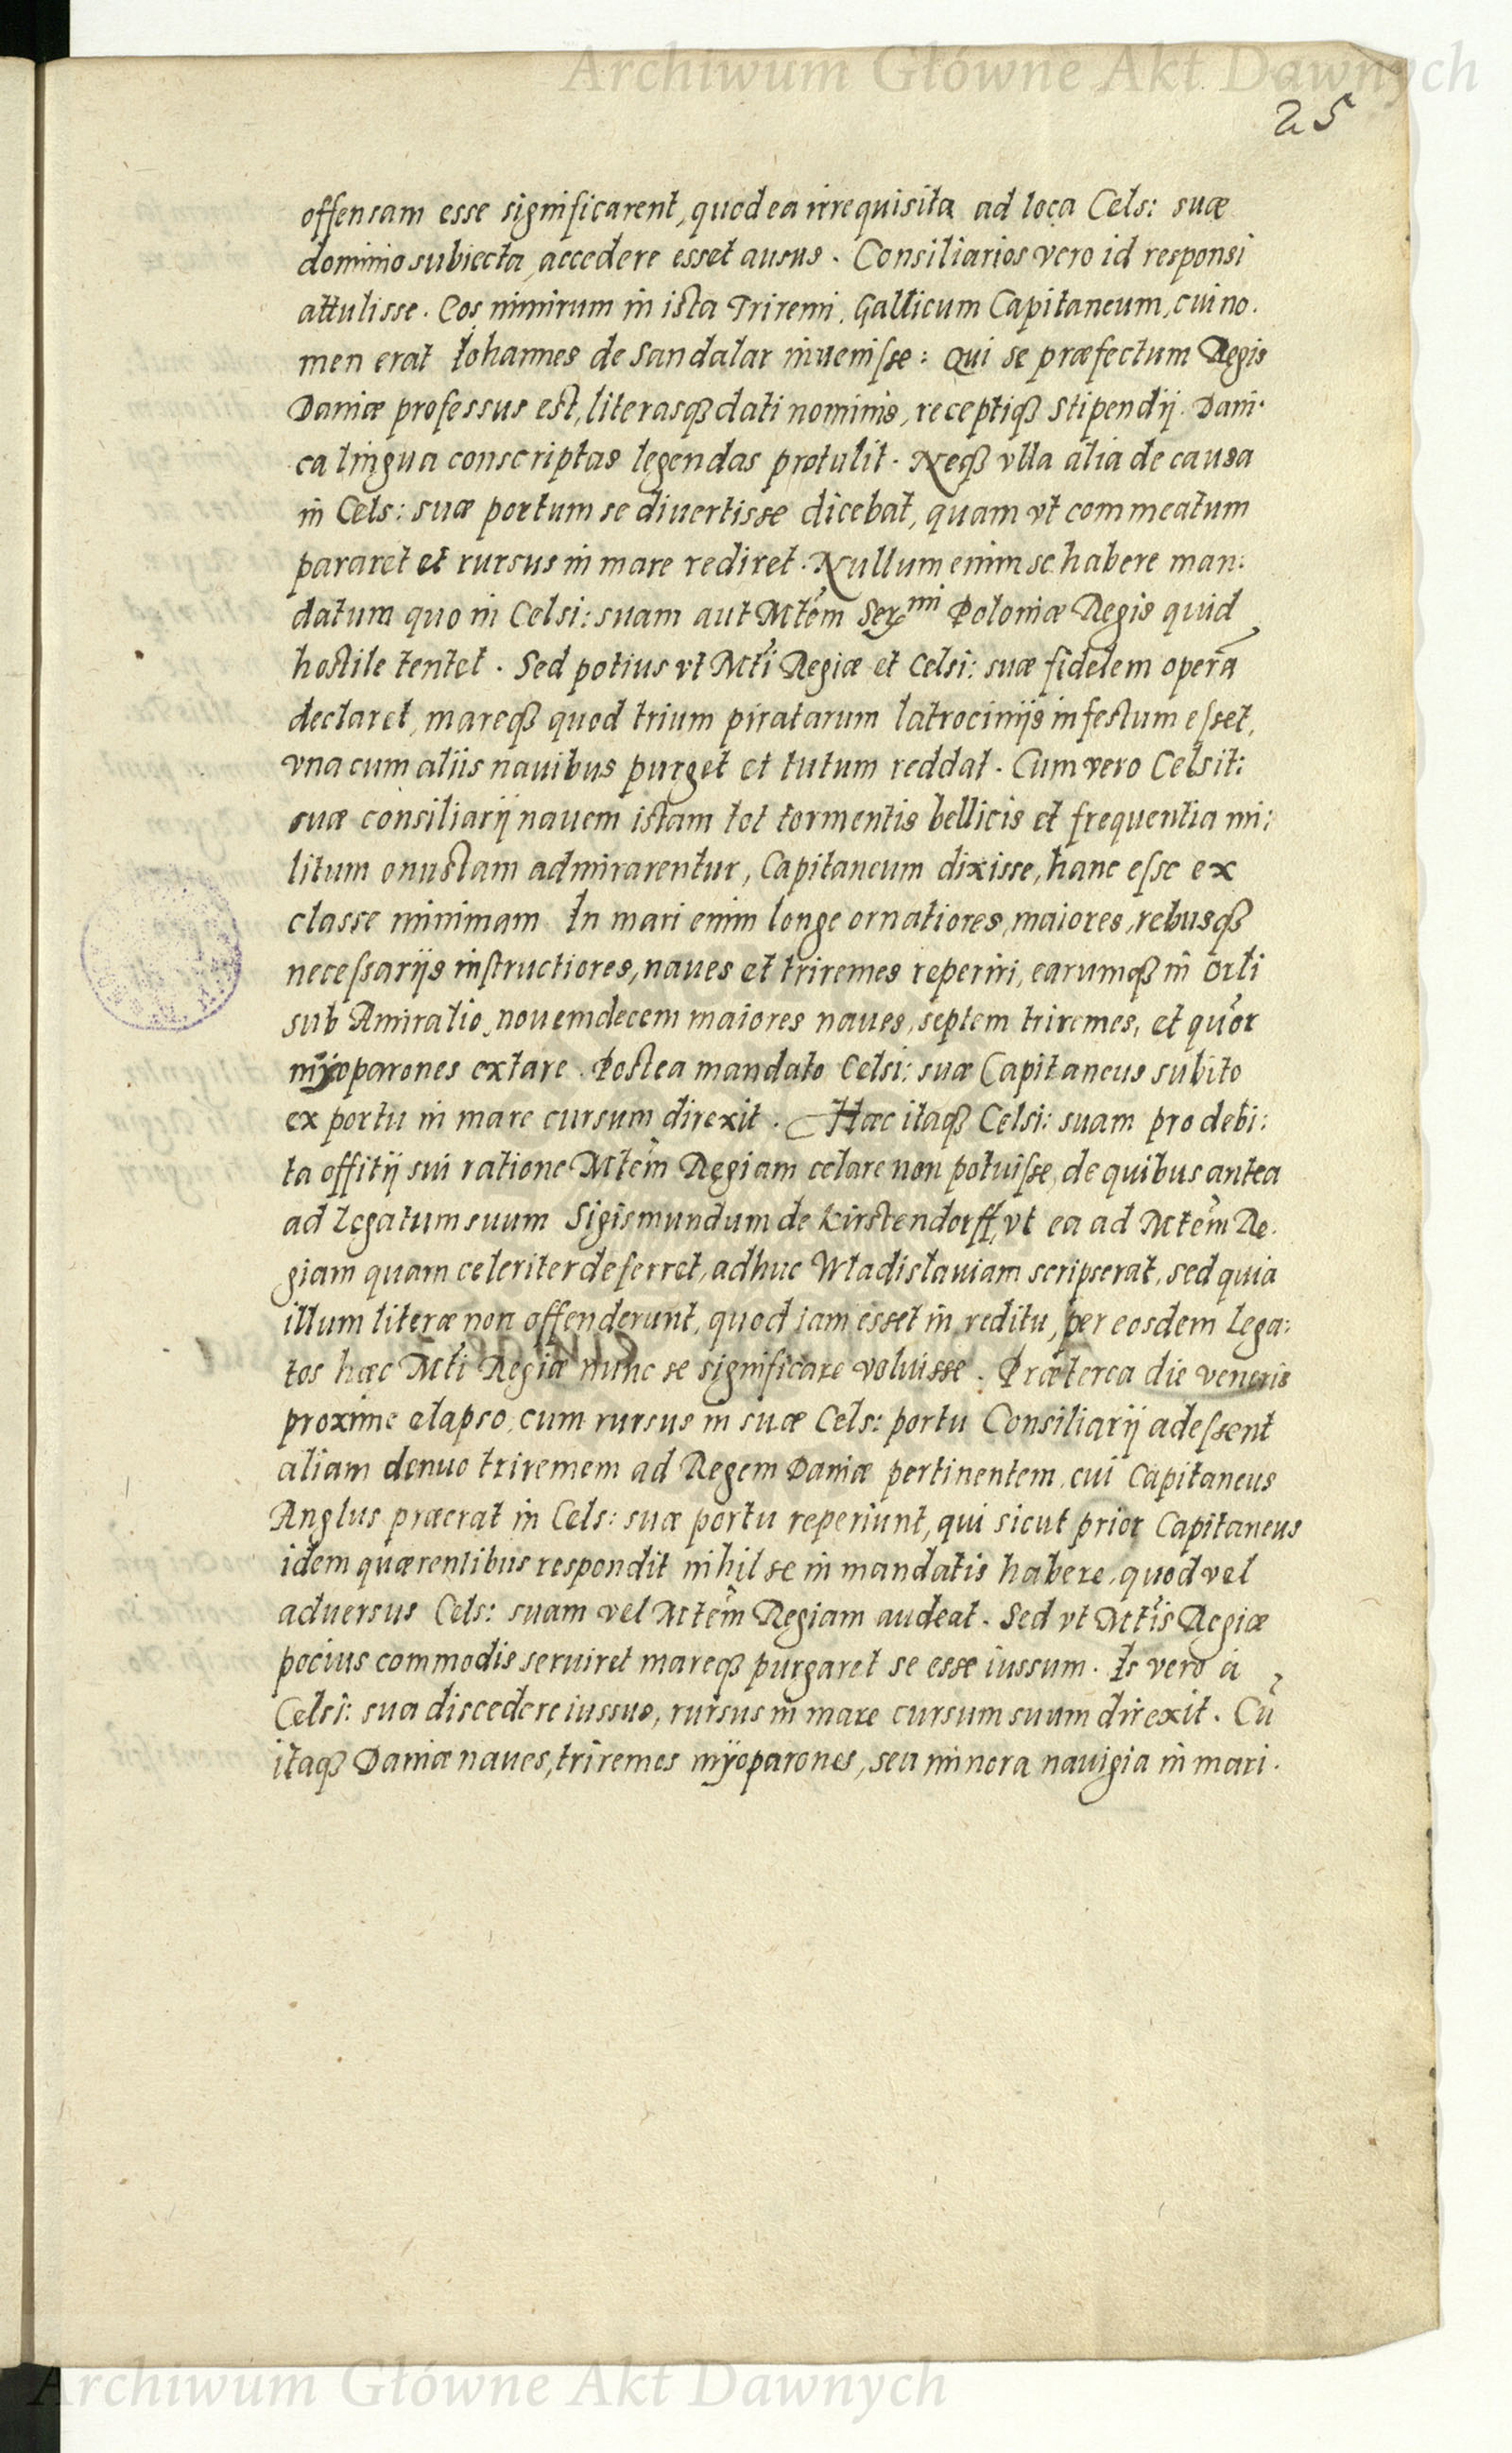 Archiwum Główne Akt Dawnych
25
offensam esse significarent, quod ea irrequisita ad loca Cels: suæ
dominio subiecta, accedere esset ausus. Consiliarios vero id responsi
attulisse. Eos nimirum in ista Triremi, Gallicum Capitaneum, cui no.
men erat Iohannes de Sandalar inuenisse: Qui se præfectum Regis
Daniæ professus est, literasq3 dati nominis, receptiq3 Stipendij. Dani.
ca lingua conscriptas legendas protulit. Neq3 vlla alia de causa
in Cels: suæ portum se diuertisse dicebat, quam vt commeatum
pararet et rursus in mare rediret. Nullum enim se habere man:
datum quo in Celsi: suam aut Mtem Ser mi Poloniæ Regis quid
hostile tentet. Sed potius vt Mti Regiæ et Celsi: suæ fidelem operā
declaret, mareq3 quod trium piratarum latrocinijs infestum esset,
vna cum aliis nauibus purget et tutum reddat. Cum vero Celsit:
suæ consiliarij nauem istam tot tormentis bellicis et frequentia mi:
litum onustam admirarentur, Capitaneum dixisse, hanc esse ex
classe minimam In mari enim longe ornatiores, maiores, rebusq3
necessarijs instructiores, naues et triremes reperiri, earumq3 in Orli
sub Amiralio, nouemdecem maiores naues, septem triremes, et quor
myoparones extare. Postea mandato Celsi: suæ Capitaneus subito
ex portu in mare cursum direxit. Hæc itaq3 Celsi: suam pro debi:
ta offitij sui ratione Mtem Regiam celare non potuisse, de quibus antea
ad Legatum suum Sigismundum de Kirstendorff, vt ea ad Mtem Re.
giam quam celeriter deferret, adhuc Wladislauiam scripserat, sed quia
illum literæ non offenderunt, quod iam esset in reditu, per eosdem Lega:
tos hæc Mti Regiæ nunc se significare voluisse. Præterea die veneris
proxime elapso, cum rursus in suæ Cels: portu Consiliarij adessent
aliam denuo triremem ad Regem Daniæ pertinentem, cui Capitaneus
Anglus præerat in Cels: suæ portu reperiunt, qui sicut prior Capitaneus
idem quærentibus respondit nihil se in mandatis habere, quod vel
aduersus Cels: suam vel Mtem Regiam audeat. Sed vt Mtis Regiæ
pocius commodis seruiret mareq3 purgaret se esse iussum. Is vero à
Celsi: sua discedere iussus, rursus in mare cursum suum direxit. Cū
itaq3 Daniæ naues, triremes myoparones, seu minora nauigia in mari.
Archiwum Główne Akt Dawnych